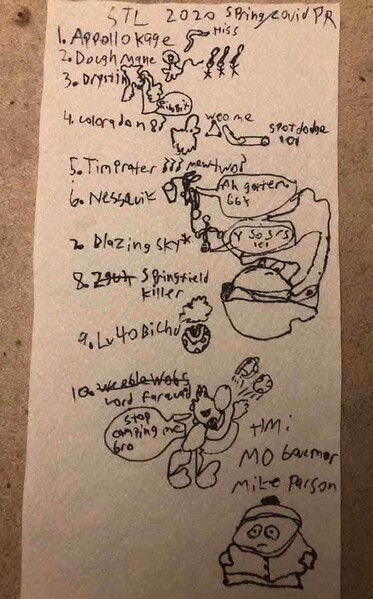 STL 2020 Spring/covid PR
1. Appollo Kage
Hiss
2. Dough Mane
3. Drystin
Ribbit
4. Coloradan 83
woo me
spot dodge
lol
5. Tim prater mewtwo?
6. Nessquik
Ah gotter.
667
7. Blazing sky*
y so srs
lol
8. Zgut Springfield
Killer
9. Lv 40 Bichu
10. Weeble Wobs
Lord Farquad
Stop
camping me
bro
HMi
MO Governor
Mike Parson